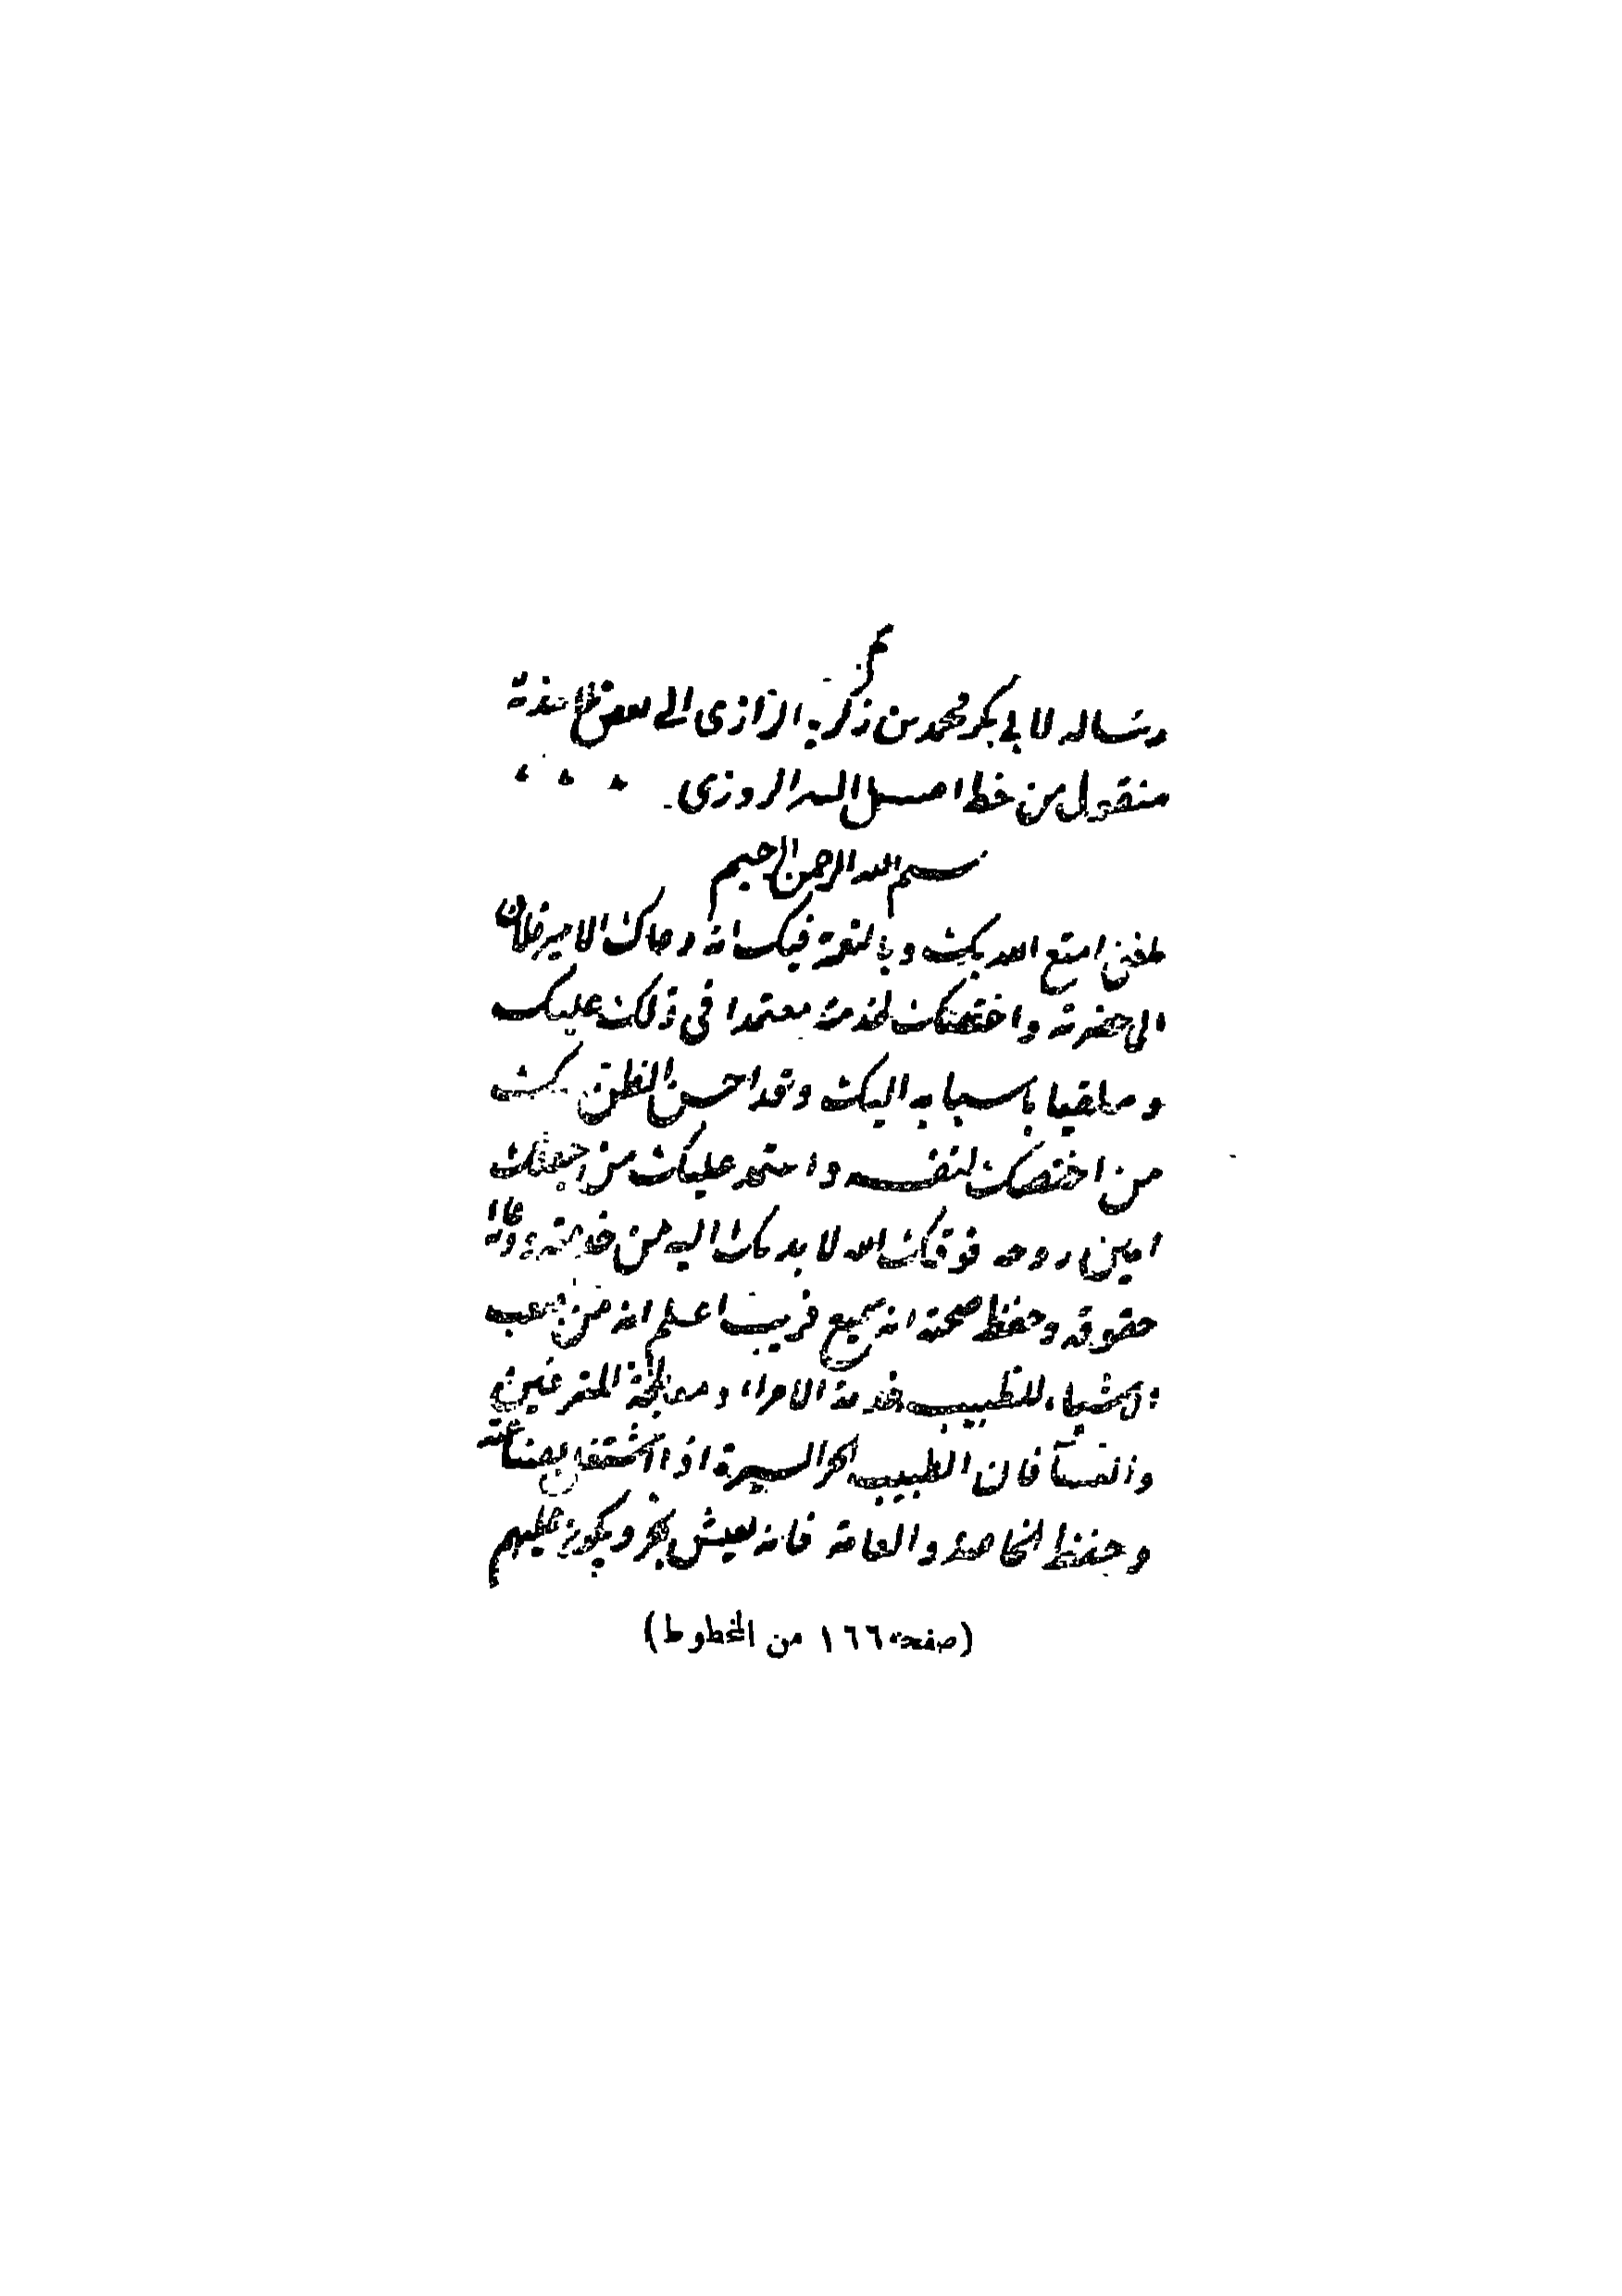 رساله لابي بكر محمد بن زكريا الرازى الى بعض تلامذته
منقول من خط اصيل الروزى
بسم الله الرحمن الرحيم
بلغنى امتع الله بك وبالنعمة فيك انه دعاك الامير فلان
الى حضرته واختصك لخدمته معتمدا فى ذلك عليك
وملقيا باسبابه اليك وقد احسن الظن بك
من اختصك لنفسه واعتمد عليك من اجعلك
امين روحه فوفقك الله لا بد لك اليه من خدمته ورعاية
حقوقه وحفظ صحته انه سميع قريب اعلم انه من اصعب
الاشياء للطبيب خدمة الامراء ومعالجة المترفين
والنساء فان الطبيب الحر السيرة اذا اشتغل بصناعته
وحفظ الخاصة والعامة فانه يعيش بخير ويكون عليهم
(صفحة ١٦٦ من المخطوط)